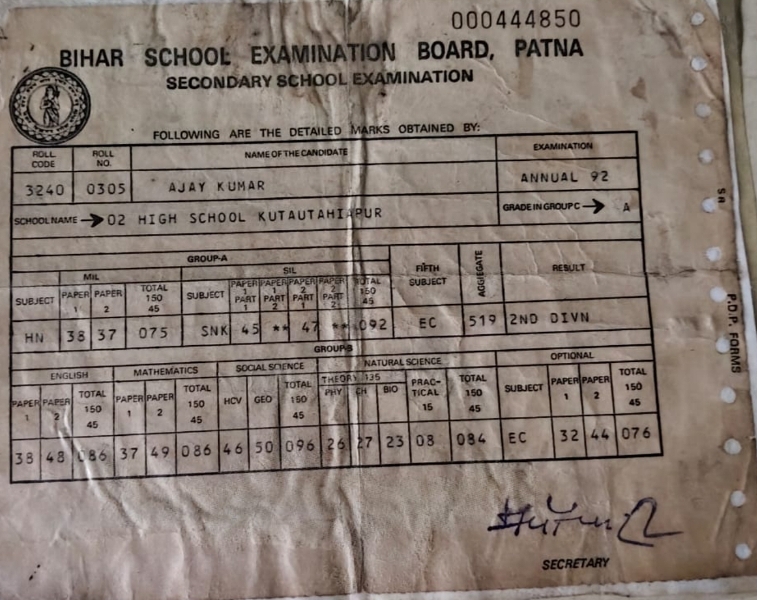 000444850
BIHAR SCHOOL EXAMINATION BOARD, PATNA
SECONDARY SCHOOL EXAMINATION
FOLLOWING ARE THE DETAILED MARKS OBTAINED BY:
ROLL CODE ROLL NO. NAME OF THE CANDIDATE EXAMINATION
3240 0305 AJAY KUMAR ANNUAL 92
SCHOOL NAME → 02 HIGH SCHOOL KUTAUTAHIAPUR GRADE IN GROUP C → A
GROUP-A
MIL SIL FIFTH SUBJECT AGGREGATE RESULT
SUBJECT PAPER 1 PAPER 2 TOTAL 150 45 SUBJECT PAPER 1 PART 1 PAPER 1 PART 2 PAPER 2 PART 1 PAPER 2 PART 2 TOTAL 150 45
HN 38 37 075 SNK 45 ** 47 ** 092 EC 519 2ND DIVN
GROUP-B
ENGLISH MATHEMATICS SOCIAL SCIENCE NATURAL SCIENCE OPTIONAL
PAPER 1 PAPER 2 TOTAL 150 45 PAPER 1 PAPER 2 TOTAL 150 45 HCV GEO TOTAL 150 45 THEORY 135 PHY CH BIO PRAC-TICAL 15 TOTAL 150 45 SUBJECT PAPER 1 PAPER 2 TOTAL 150 45
38 48 086 37 49 086 46 50 096 26 27 23 08 084 EC 32 44 076
SECRETARY
P.D.P. FORMS